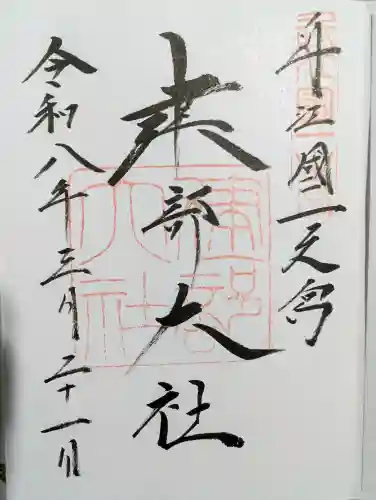 近江國一之宮
建部大社
令和八年三月二十一日